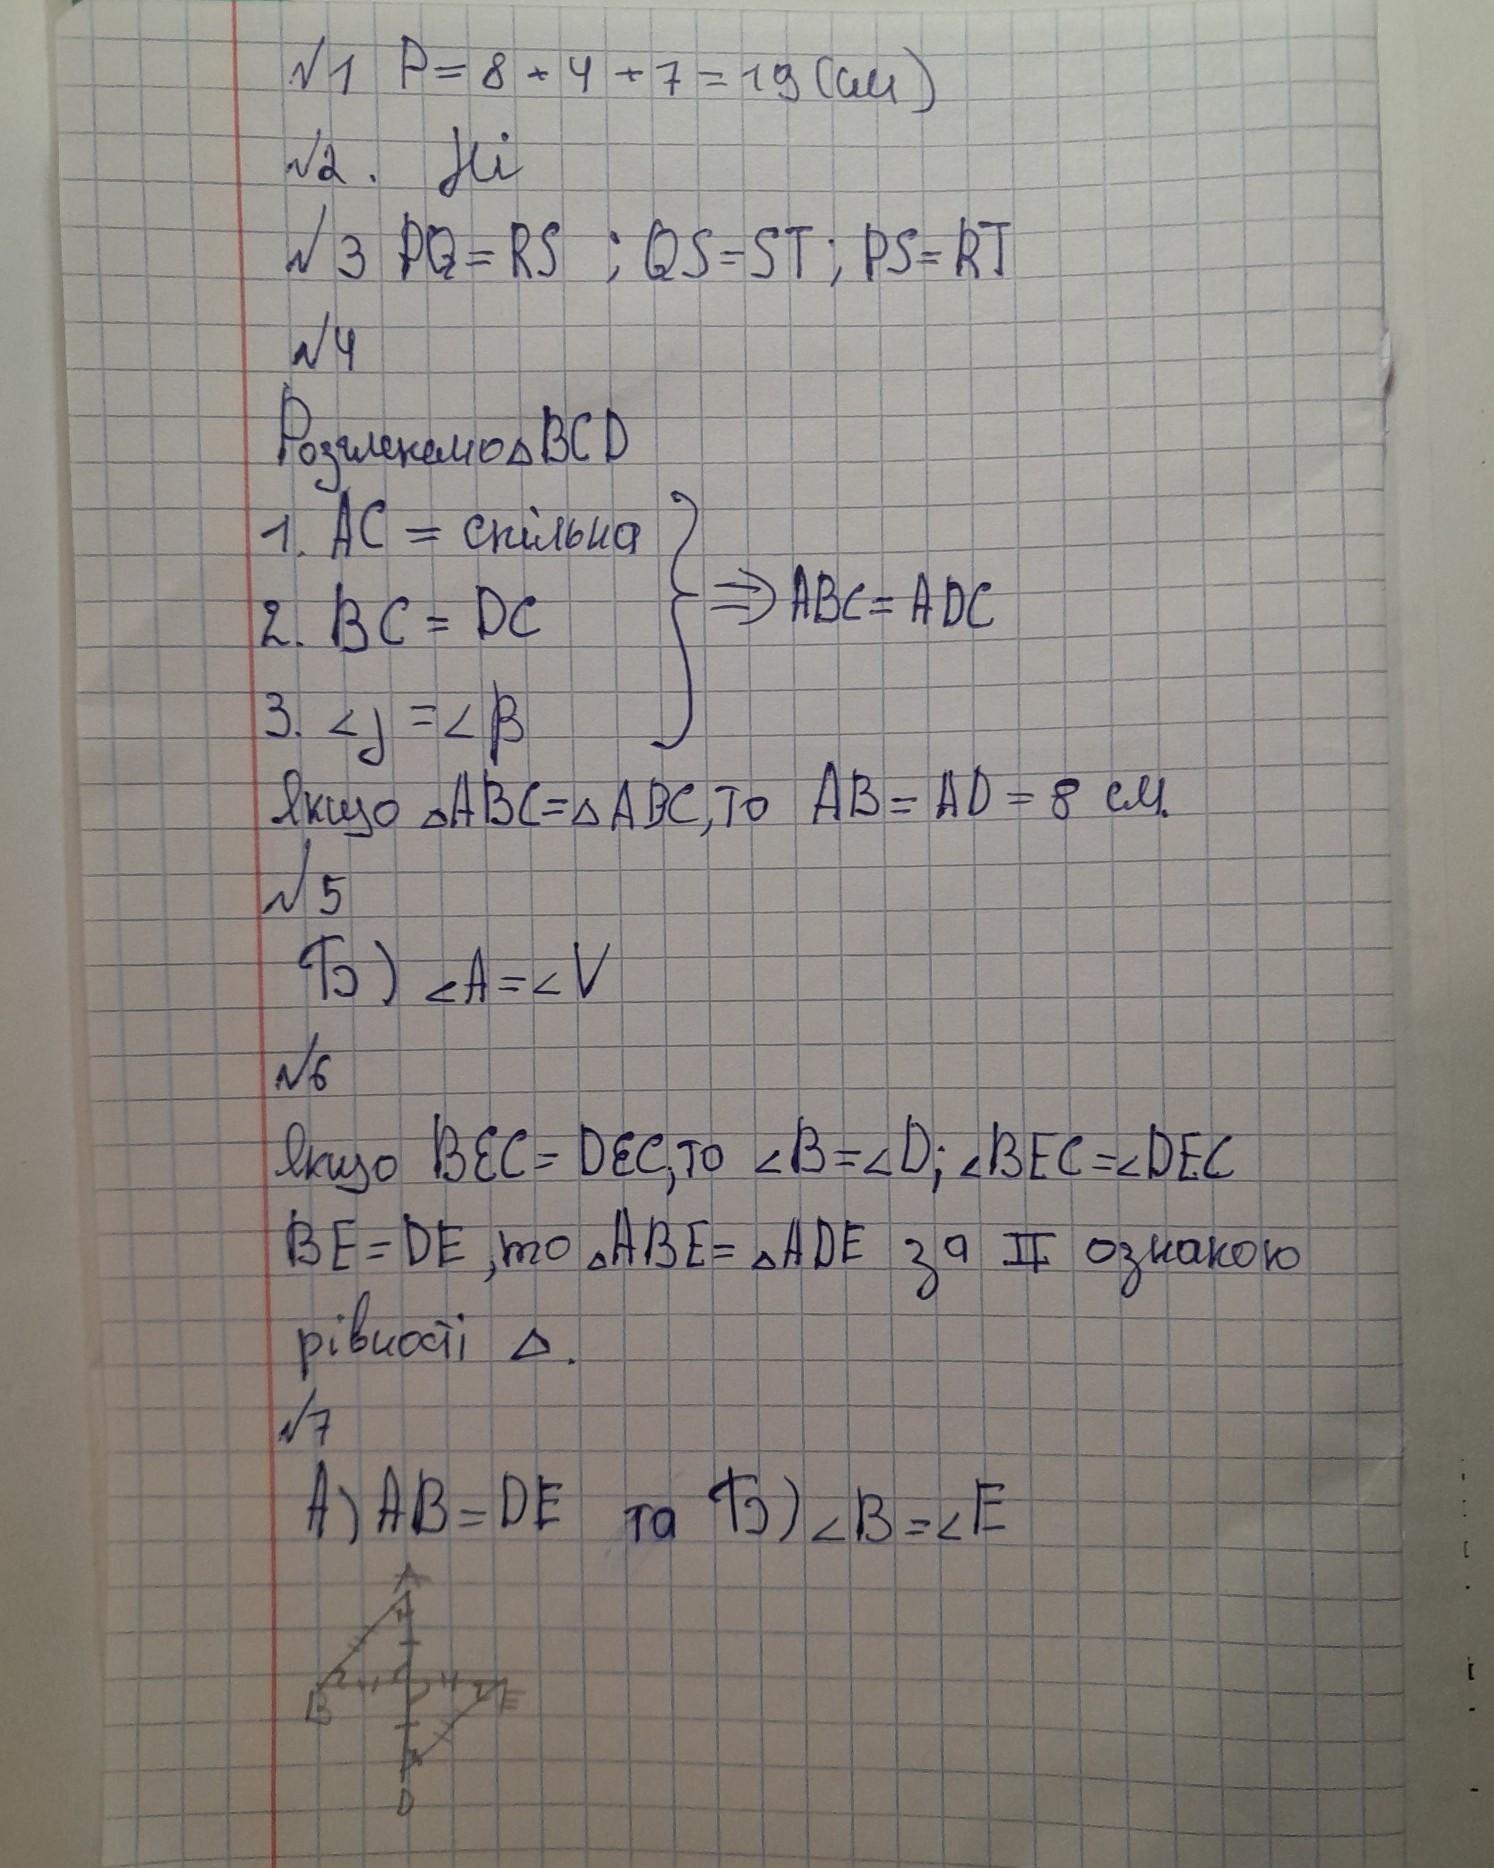 №1 P = 8 + 4 + 7 = 19 (см)
№2. Ні
№3 PQ = RS ; QS = ST ; PS = RT
№4
Розглянемо △BCD
1. AC = спільна
2. BC = DC
3. ∠γ = ∠β
⇒ ABC = ADC
Якщо △ABC = △ABC, то AB = AD = 8 см.
№5
Б) ∠A = ∠V
№6
Якщо BEC = DEC, то ∠B = ∠D; ∠BEC = ∠DEC
BE = DE, то △ABE = △ADE за II ознакою
рівності △.
№7
А) AB = DE та Б) ∠B = ∠E
A
B
E
D